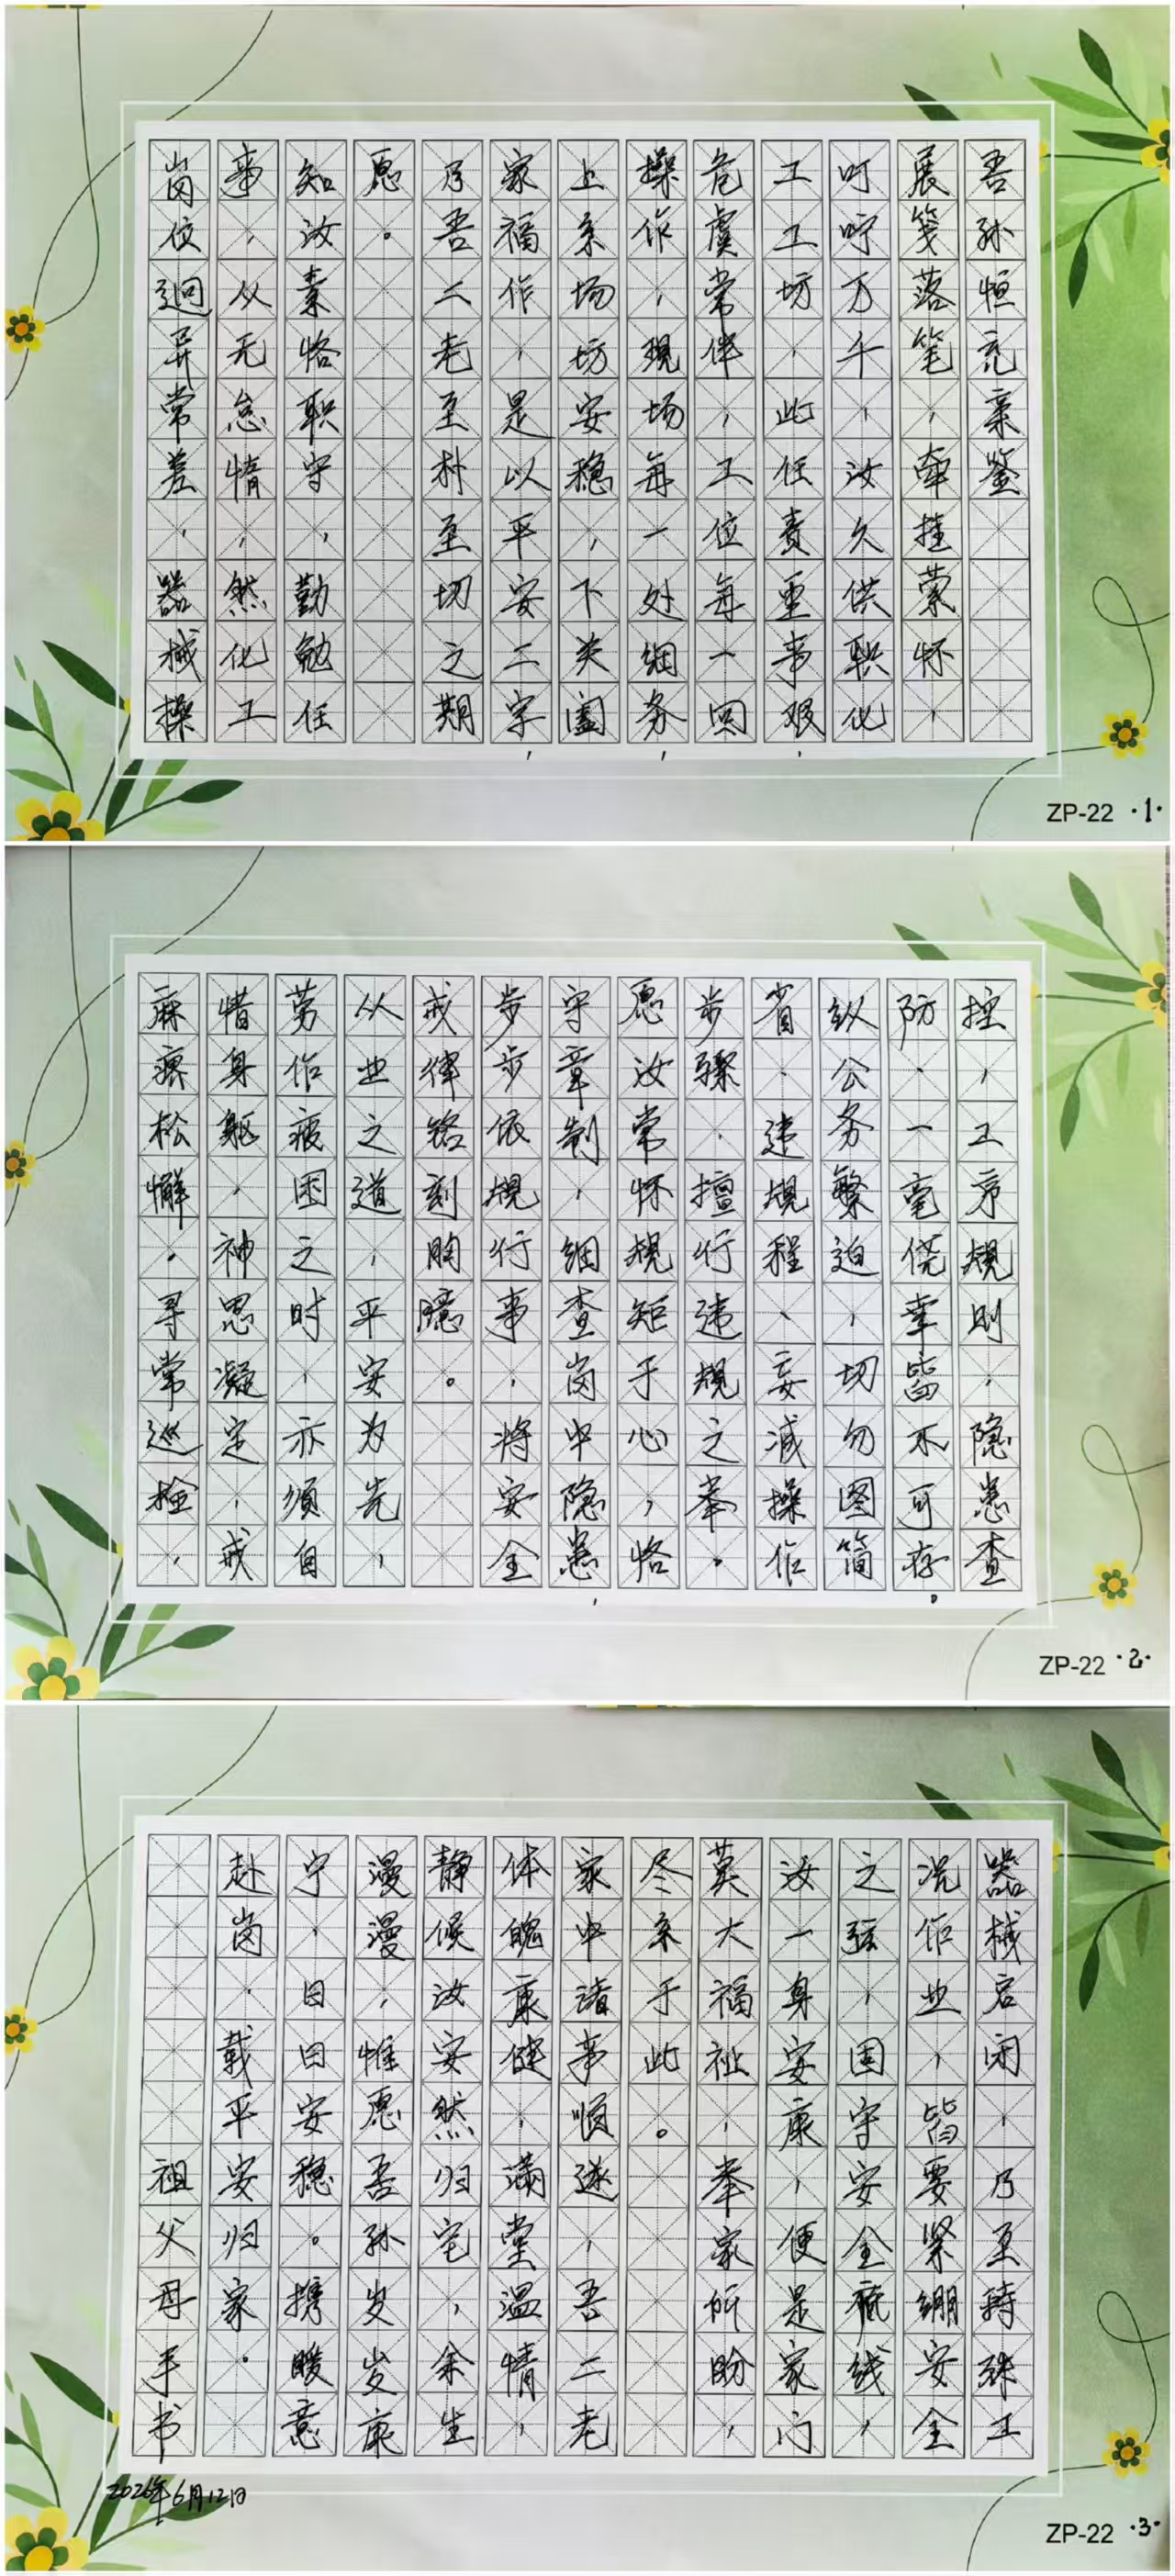 吾孙恒亮亲鉴
展笺落笔，牵挂萦怀，
叮咛万千，汝久供职化
工工坊，此任责重事艰，
危虞常伴，工位每一回
操作，现场每一处细务，
上系场坊安稳，下关阖
家福祚，是以平安二字，
乃吾二老至朴至切之期
愿。
知汝素恪职守，勤勉任
事，从无怠惰，然化工
岗位迥异常差，器械操
ZP-22 ·1·
控，工序规则，隐患查
防、一毫侥幸皆不可存。
纵公务繁迫，切勿图简
省、违规程、妄减操作
步骤、擅行违规之举。
愿汝常怀规矩于心，恪
守章制，细查岗中隐患，
步步依规行事，将安全
戒律铭刻胸臆。
从业之道，平安为先，
劳作疲困之时，亦须自
惜身躯，神思凝定，戒
麻痹松懈。寻常巡检，
ZP-22 ·2·
器械启闭，乃至特殊工
况作业，皆要紧绷安全
之弦，固守安全底线，
汝一身安康，便是家门
莫大福祉，举家所盼，
尽系于此。
家中诸事顺遂，吾二老
体魄康健，满堂温情，
静候汝安然归宅，余生
漫漫，惟愿吾孙岁岁康
宁，日日安稳。携暖意
赴岗，载平安归家。
祖父母手书
2026年6月12日
ZP-22 ·3·